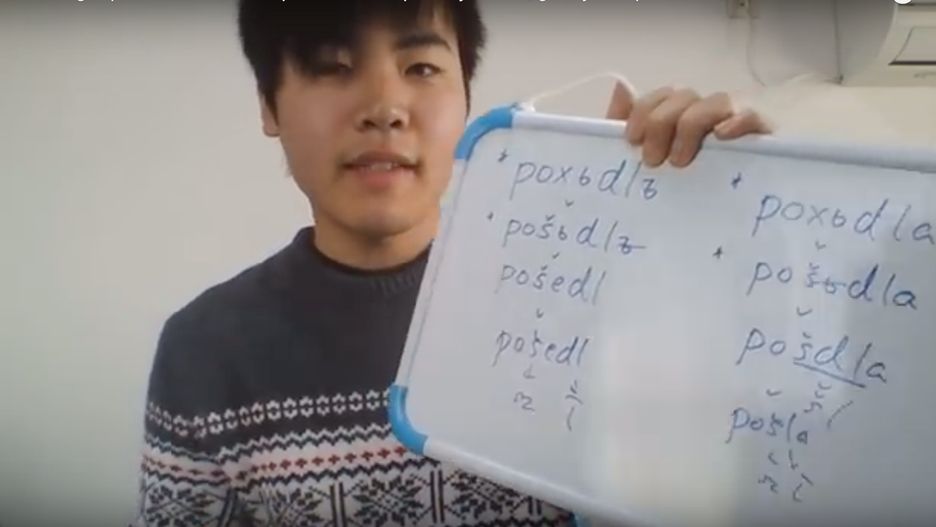 * poxьdlъ
* pošьdlъ
pošedl
pošedl
* poxьdla
* pošьdla
pošdla
pošla